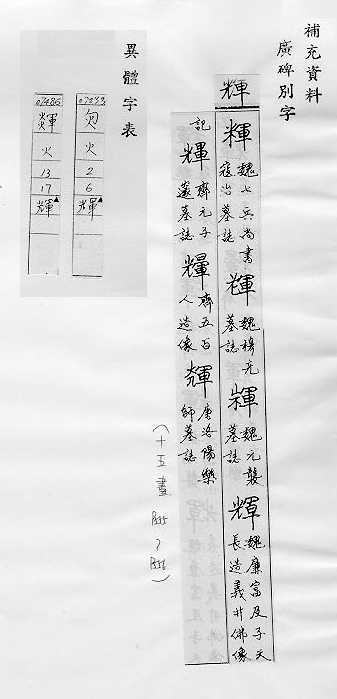 補充資料
廣碑別字
輝
輝 魏七兵尚書寇治墓誌 輝 魏楊允墓誌 輝 魏元襲墓誌 輝 魏廉富及子天長造義井佛像
記 輝 齊元子邃墓誌 輝 齊五百人造像 輝 唐洛陽樂師墓誌
(十五畫 P355 P356)
異體字表
07293
火
2
6
輝
07486
輝
火
13
17
輝